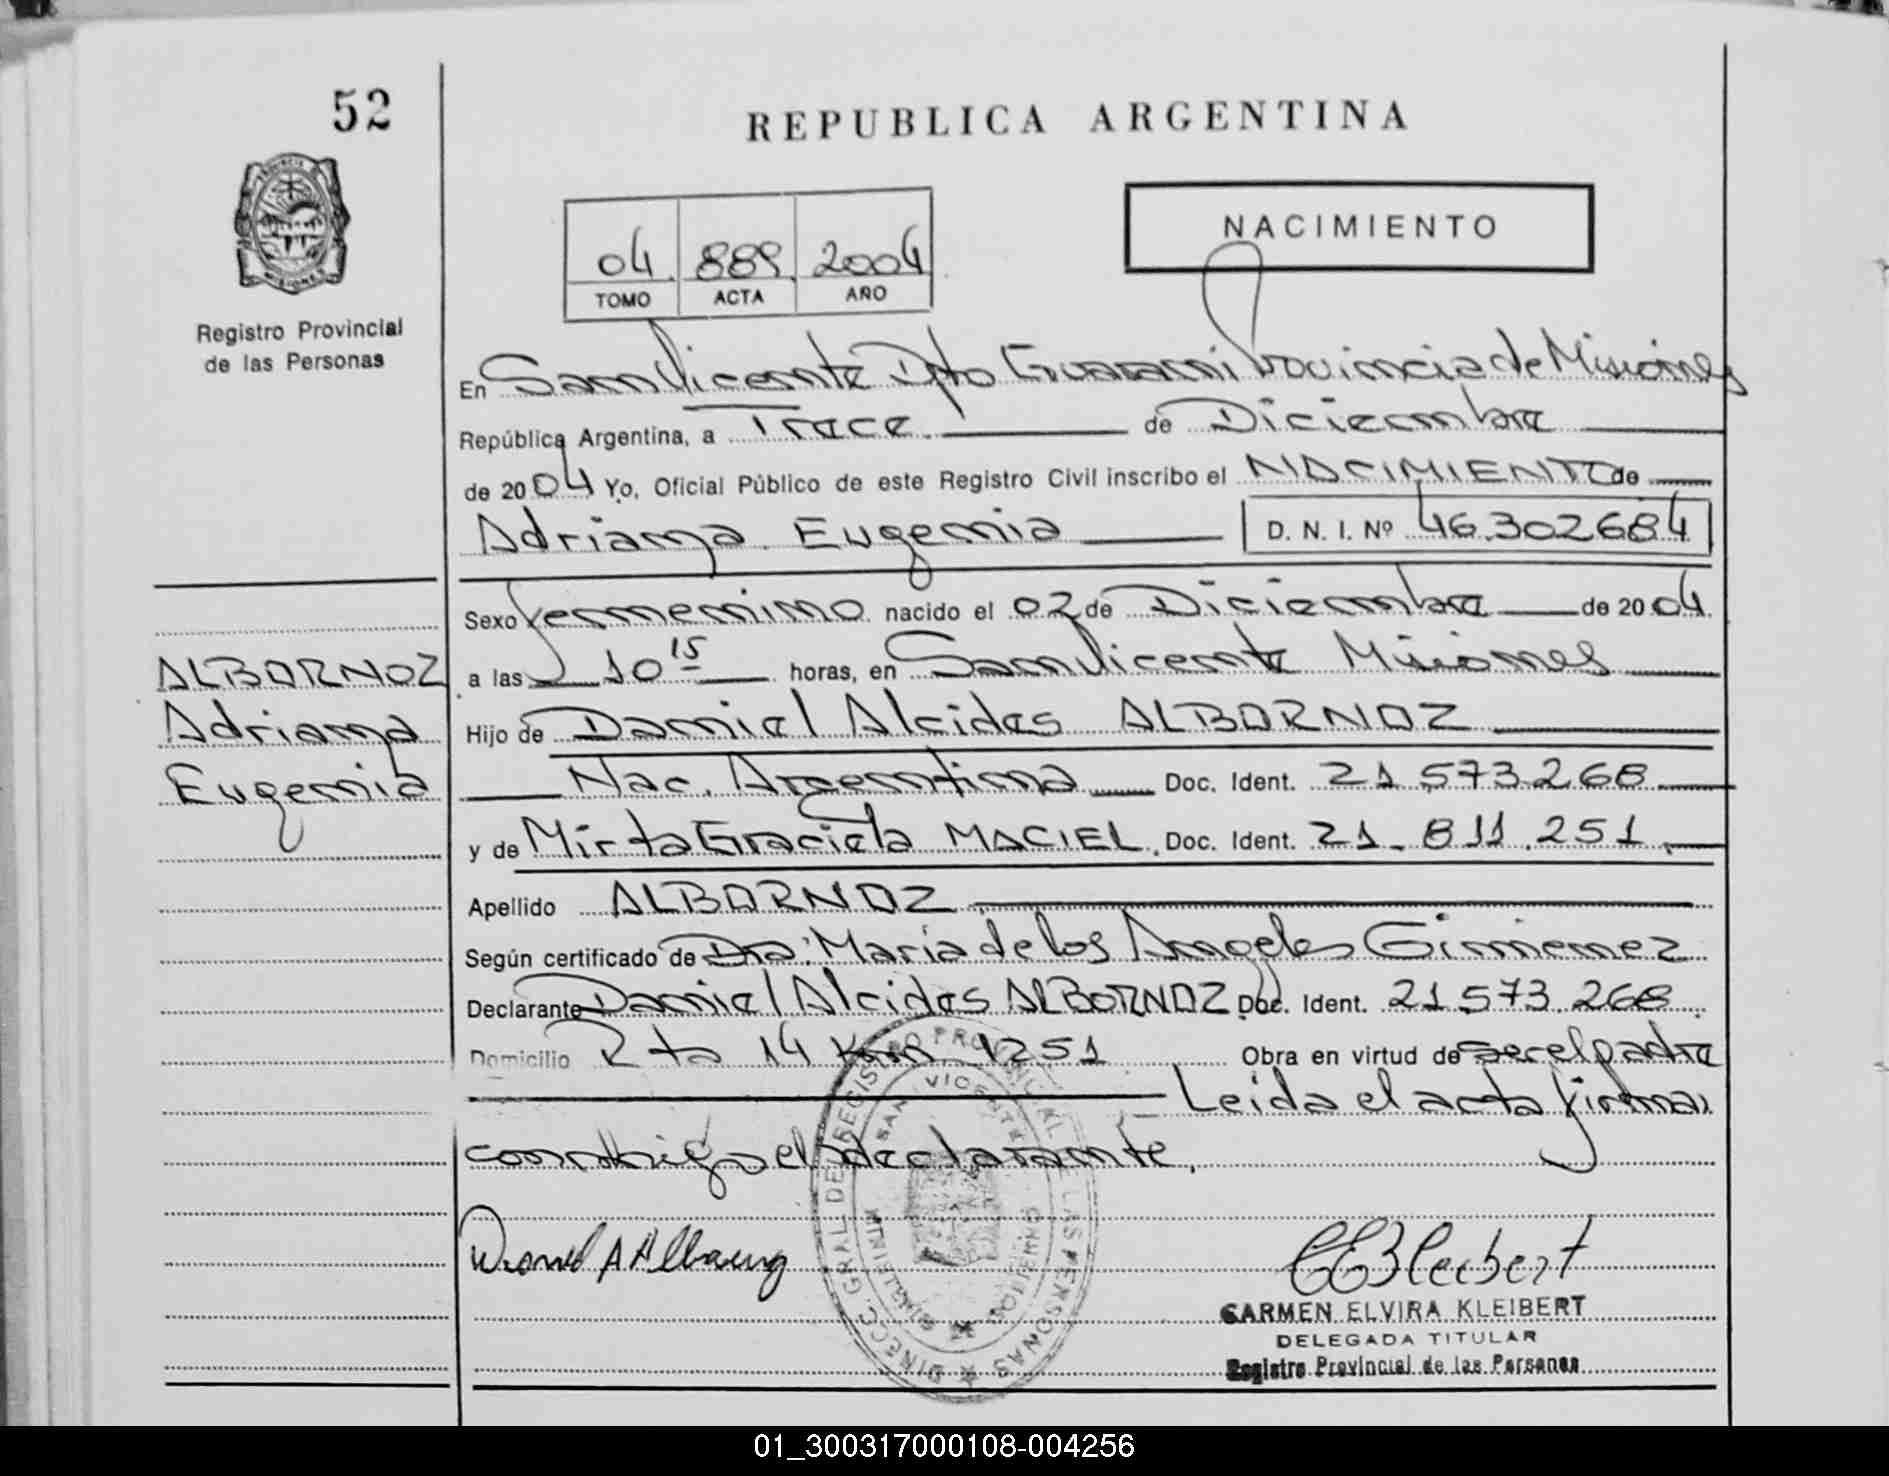 52
REPUBLICA ARGENTINA
NACIMIENTO
04 889 2004
TOMO ACTA AÑO
Registro Provincial
de las Personas
En San Vicente Dpto Guarani Provincia de Misiones
República Argentina, a Trece de Diciembre
de 2004 Yo, Oficial Público de este Registro Civil inscribo el NACIMIENTO de
Adriana Eugenia D. N. I. Nº 46.302684
Sexo femenino nacido el 02 de Diciembre de 2004
a las 10 15 horas, en San Vicente Misiones
Hijo de Daniel Alcides ALBORNOZ
Nac. Argentina Doc. Ident. 21.573.268
y de Mirta Graciela MACIEL. Doc. Ident. 21.811.251
Apellido ALBORNOZ
Según certificado de Dra: Maria de los Angeles Gimenez
Declarante Daniel Alcides ALBORNOZ Doc. Ident. 21.573.268
Domicilio Rta 14 Km 1251 Obra en virtud de ser el padre
Leida el acta firma
conmigo el declarante.
ALBORNOZ
Adriana
Eugenia
DIRECC. GRAL DEL REGISTRO PROVINCIAL DE LAS PERSONAS
SAN VICENTE
CARMEN ELVIRA KLEIBERT
DELEGADA TITULAR
Registro Provincial de las Personas
01_300317000108-004256